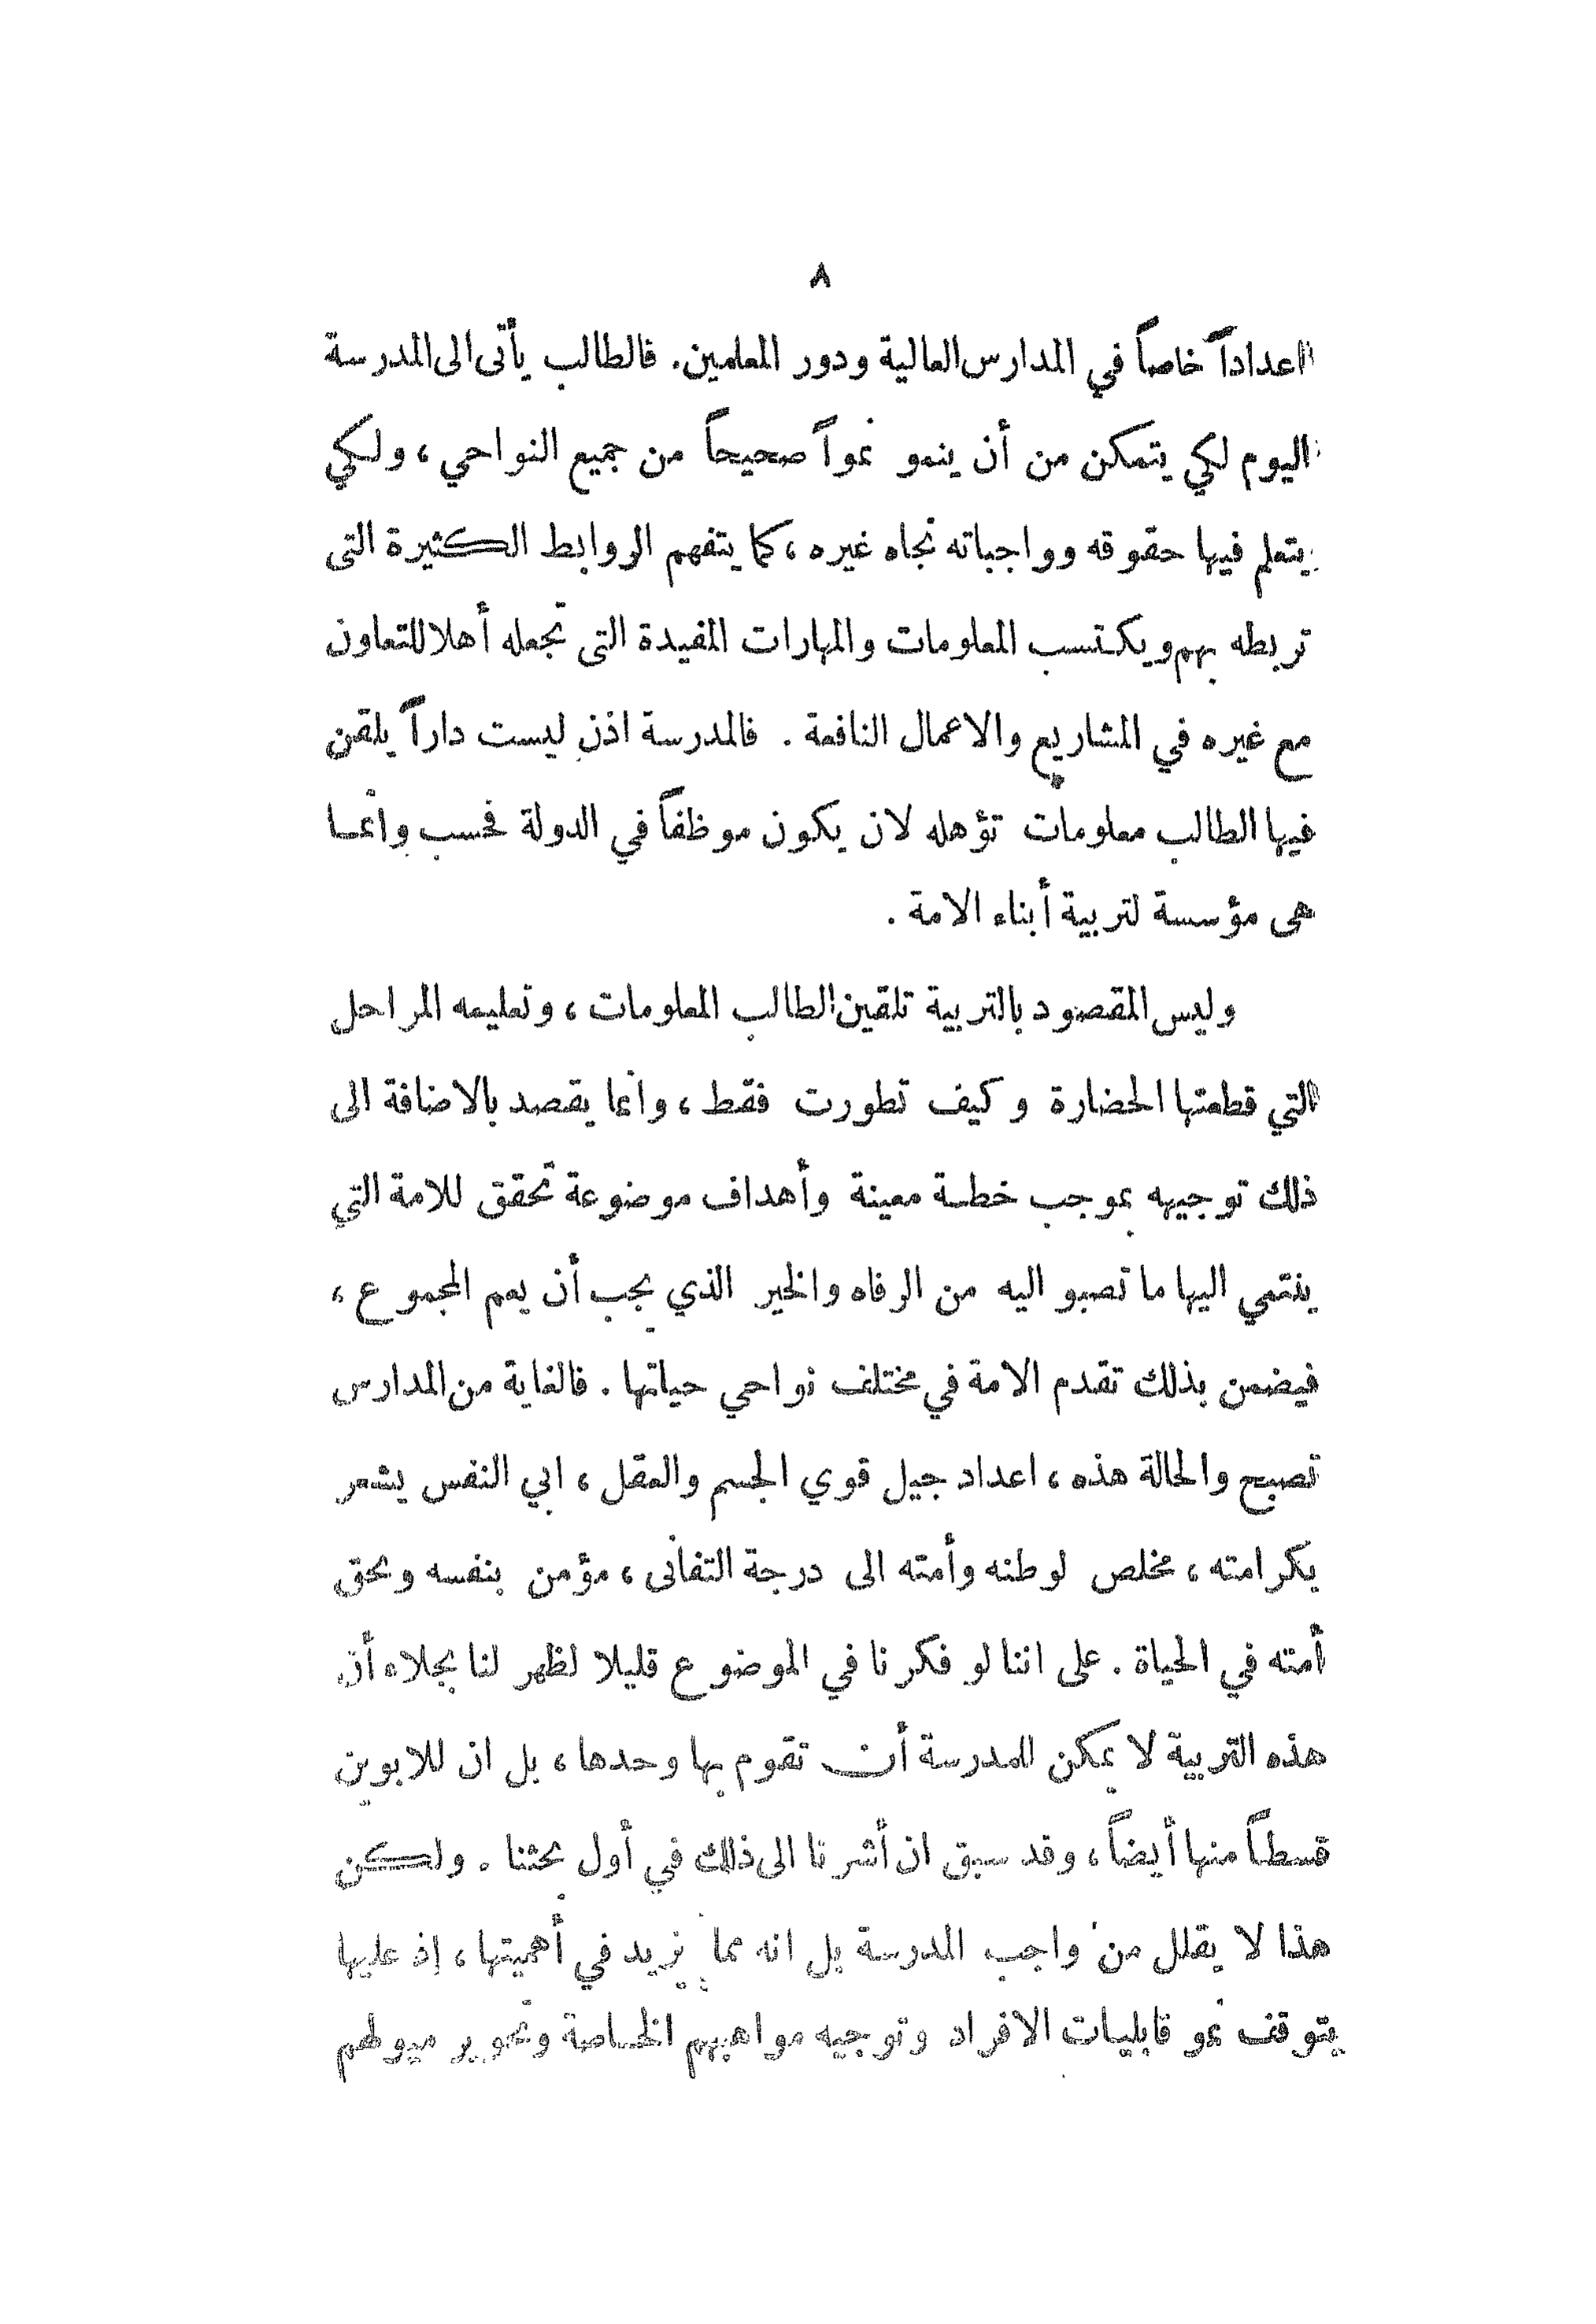 ٨
اعداداً خاصاً في المدارس العالية ودور المعلمين. فالطالب يأتى الى المدرسة
اليوم لكي يتمكن من أن ينمو نمواً صحيحاً من جميع النواحي، ولكي
يتعلم فيها حقوقه وواجباته تجاه غيره، كما يتفهم الروابط الكثيرة التى
تربطه بهم ويكتسب المعلومات والمهارات المفيدة التى تجعله أهلا للتعاون
مع غيره في المشاريع والاعمال النافعة. فالمدرسة اذن ليست داراً يلقن
فيها الطالب معلومات تؤهله لان يكون موظفاً في الدولة فحسب وانما
هى مؤسسة لتربية أبناء الامة.
وليس المقصود بالتربية تلقين الطالب المعلومات، وتعليمه المراحل
التي قطعتها الحضارة وكيف تطورت فقط، وانما يقصد بالاضافة الى
ذلك توجيهه بموجب خطة معينة وأهداف موضوعة تحقق للامة التي
ينتمي اليها ما تصبو اليه من الرفاه والخير الذي يجب أن يعم المجموع،
فيضمن بذلك تقدم الامة في مختلف نواحي حياتها. فالغاية من المدارس
تصبح والحالة هذه، اعداد جيل قوي الجسم والعقل، ابي النفس يشعر
بكرامته، مخلص لوطنه وأمته الى درجة التفانى، مؤمن بنفسه وبحق
أمته في الحياة. على اننا لو فكرنا في الموضوع قليلا لظهر لنا بجلاء أن
هذه التربية لا يمكن للمدرسة أن تقوم بها وحدها، بل ان للابوين
قسطاً منها أيضاً، وقد سبق ان أشرنا الى ذلك في أول بحثنا. ولكن
هذا لا يقلل من واجب المدرسة بل انه مما يزيد في أهميتها، إذ عليها
يتوقف نمو قابليات الافراد وتوجيه مواهبهم الخاصة وتحوير ميولهم